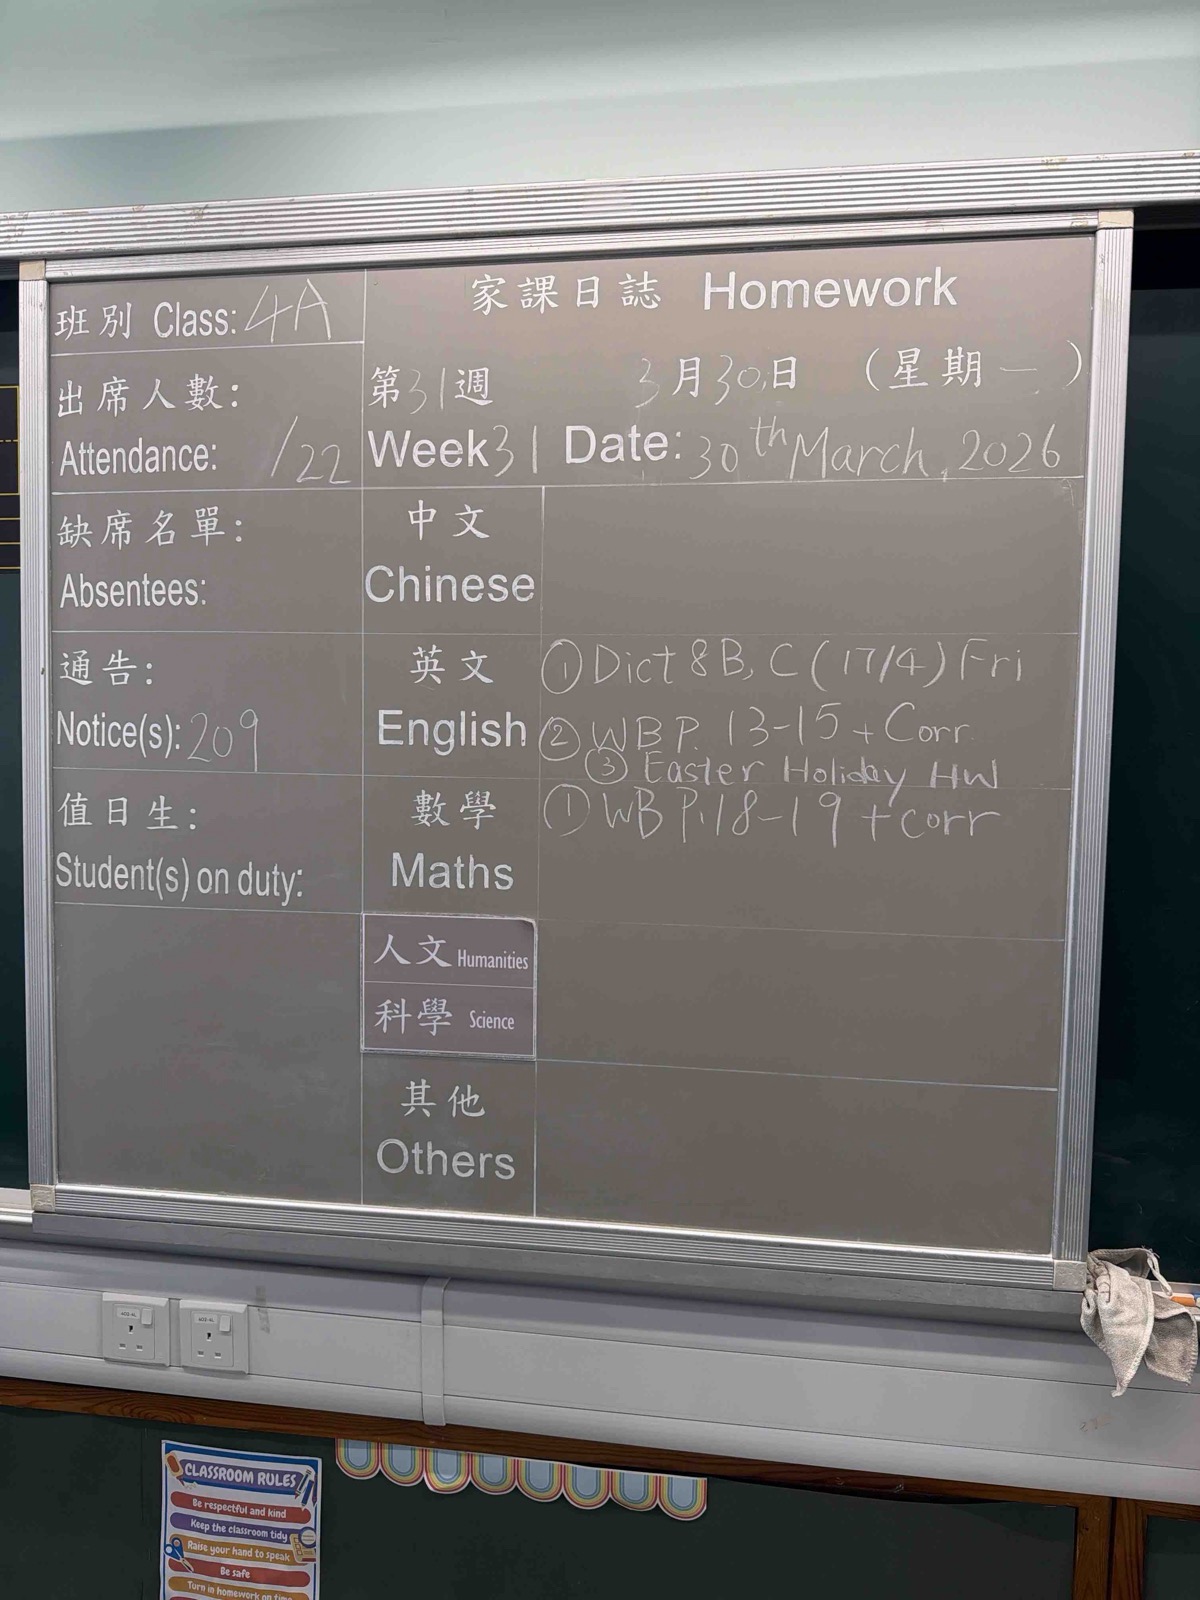 班別 Class: 4A
家課日誌 Homework
出席人數:
Attendance: /22
第31週 3月30日 (星期一)
Week 31 Date: 30th March, 2026
缺席名單:
Absentees:
中文
Chinese
通告:
Notice(s): 209
英文
English
① Dict 8B, C (17/4) Fri
② WB P. 13-15 + Corr
③ Easter Holiday HW
值日生:
Student(s) on duty:
數學
Maths
① WB P.18-19 + corr
人文 Humanities
科學 Science
其他
Others
CLASSROOM RULES
Be respectful and kind
Keep the classroom tidy
Raise your hand to speak
Be safe
Turn in homework on time